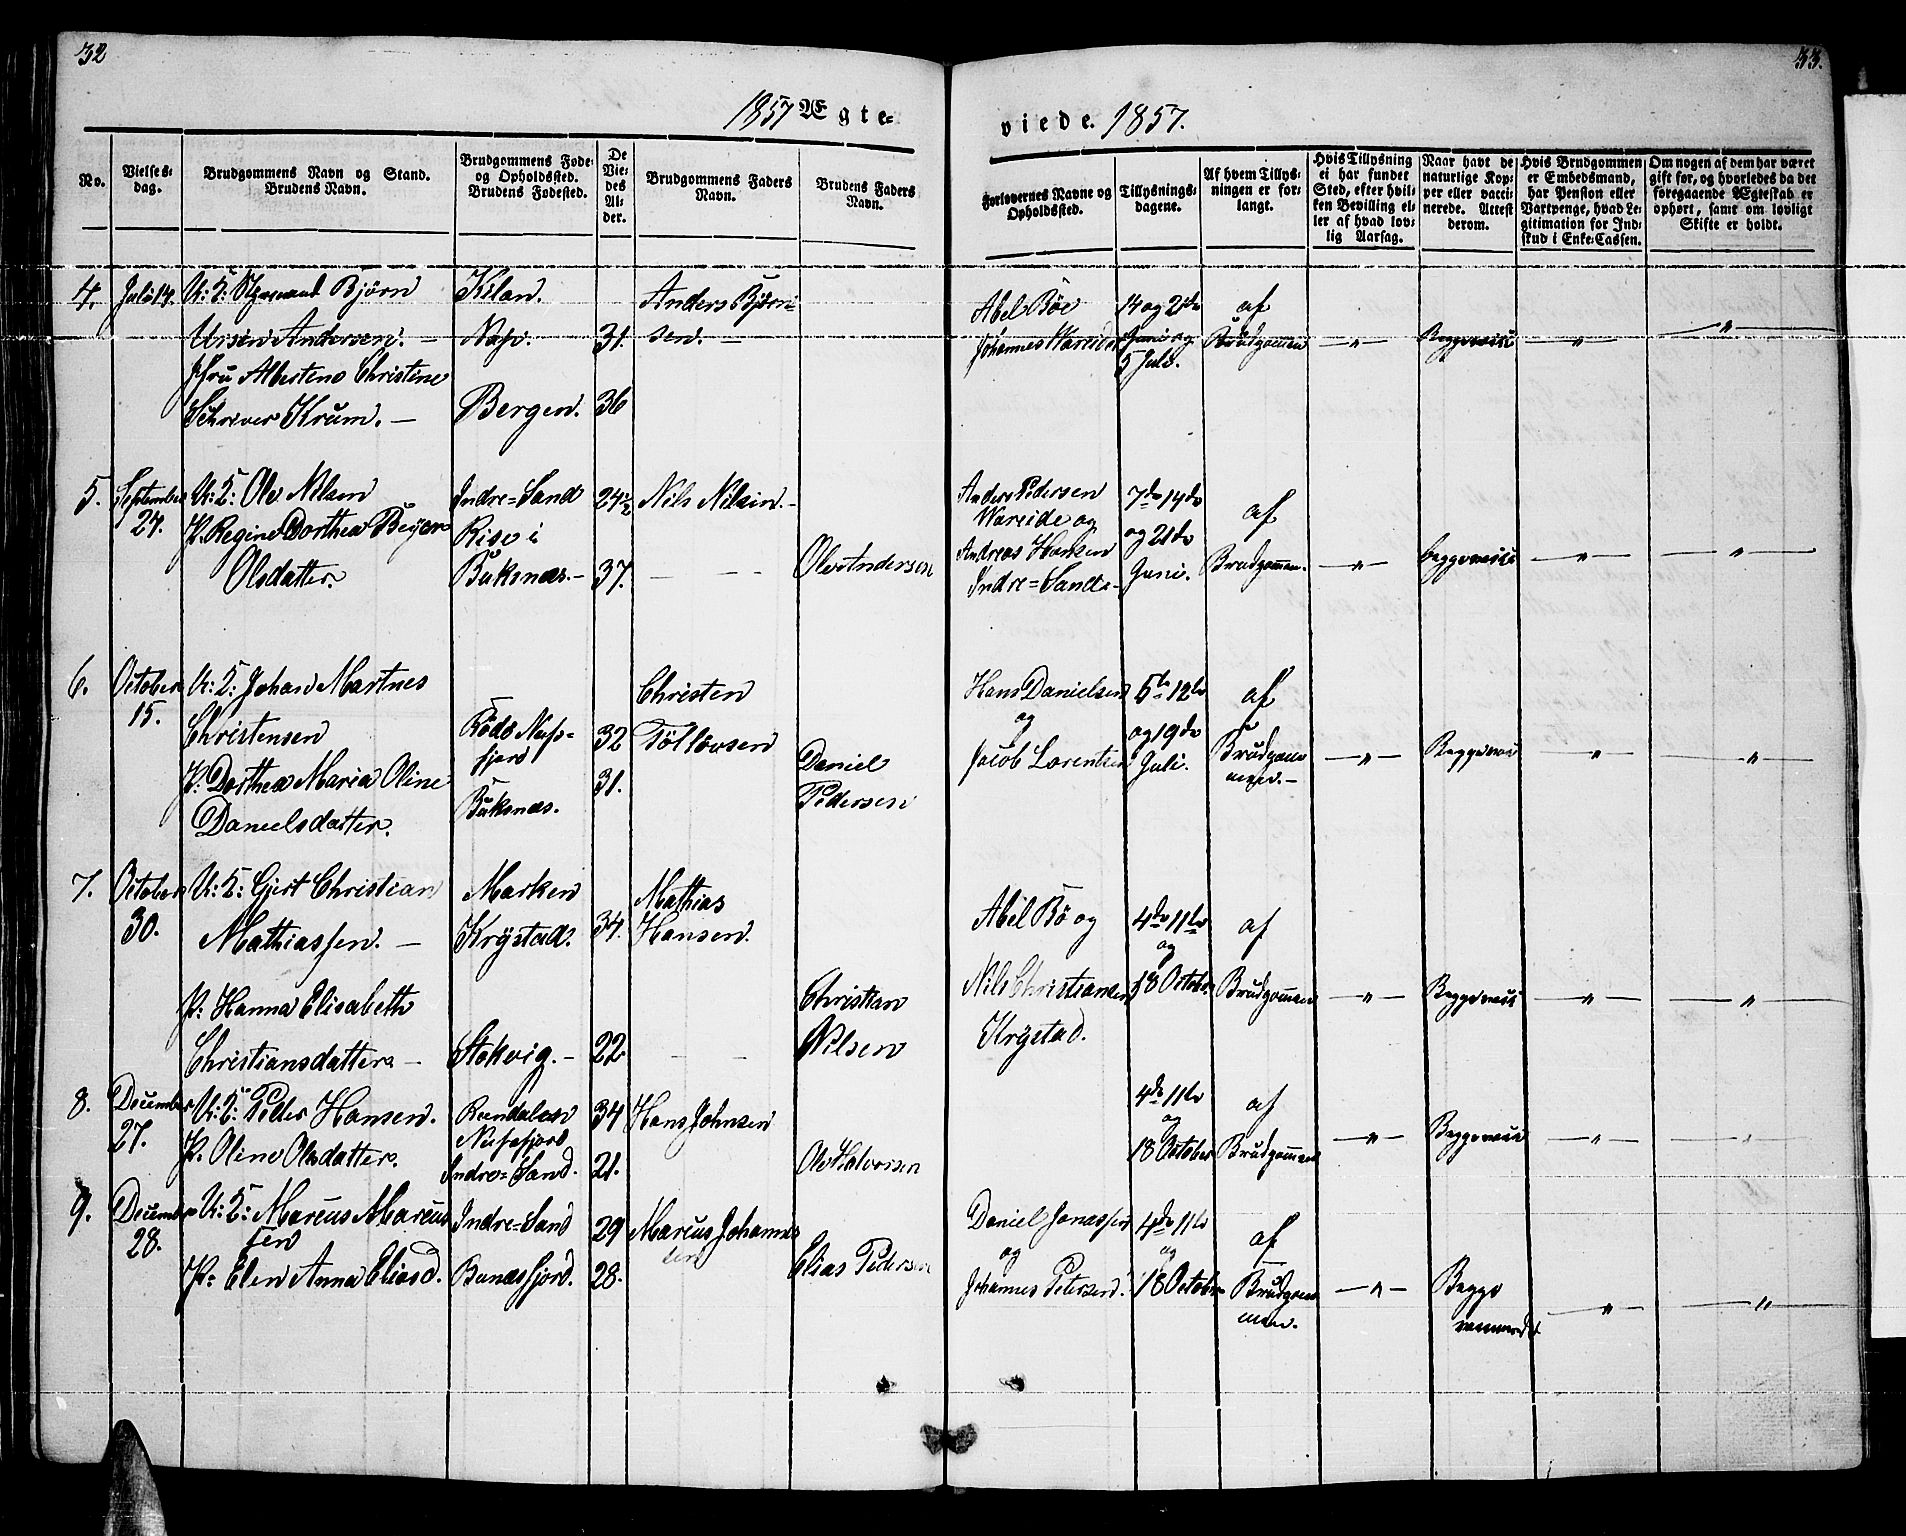 32
33.
1857 Ægte-
viede. 1857.
No.
Vielses-
dag.
Brudgommens Navn og Stand.
Brudens Navn.
Brudgommens Føde-
og Opholdssted.
Brudens Fødested.
De
Vie-
des
Al-
der.
Brudgommens Faders
Navn.
Brudens Faders
Navn.
Forlovernes Navne og
Opholdssted.
Tillysnings-
dagene.
Af hvem Tillys-
ningen er for-
langt.
Hvis Tillysning
ei har fundet
Sted, efter hvil-
ken Bevilling el-
ler af hvad lov-
lig Aarsag.
Naar havt de
naturlige Kop-
per eller vacci-
nerede. Attest
derom.
Hvis Brudgommen
er Embedsmand,
har Pension eller
Vartpenge, hvad Le-
gitimation for Ind-
skud i Enke-Cassen.
Om nogen af dem har været
gift før, og hvorledes da det
foregaaende Ægteskab er
ophørt, samt om lovligt
Skifte er holdt.
4. Juli 14. U: K: Bjørn
Ursin Andersen. —
Jfru Albertine Christine
Schriver Krum. —
Kilan.
Bergen.
31.
36
Anders Bjørn-
sen. —
Abel Böe
Johannes Wareide
14 og 21de
Juni og
5 Juli.
af
Brudgommen
— " —
— " —
— " —
5. September
24.
U: K: Ole Nilsen
P. Regine Dorthea Beyer
Olsdatter.
Indre=Sand
Rise i
Buksnæs. —
24½
37.
Nils Nilsen. —
— —
Ole Andersen
Anders Pedersen
Wareide og
Andreas Hansen
Indre=Sand. —
7de 14de
og 21de
Juni.
af
Brudgommen.
— " —
— " —
— " —
6. October
15.
U: K: Johan Martnes
Christensen
P. Dorthea Maria Oline
Danielsdatter.
Rödö Nufs-
fjord
Buksnæs.
32
31.
Christen
Tollövsen
Daniel
Pedersen
Hans Danielsen
og
Jacob Lorentsen
5te 12te
og 19de
Juli.
af
Brudgom-
men. —
— " —
— " —
— " —
7. October
30.
U: K: Gjert Christian
Mathiassen. —
P. Hanna Elisabeth
Christiansdatter. —
Marken
Krystad.
Stokvig. —
34.
22
Mathias
Hansen.
— —
Christian
Nilsen
Abel Bö og
Nils Christiansen
Krystad.
4de 11te
og
18 October
af
Brudgommen
— " —
— " —
— " —
8. December
27.
U: K: Peder Hansen.
P. Oline Olsdatter.
Nufsfjord
Indre=Sand.
34
21.
Hans Johnsen
Ole Halvorsen
4de 11te
og
18 October
af
Brudgommen
— " —
— " —
"
9. December
28.
U: K: Marcus Marcus-
sen
P. Elen Anna Eliasd.
Indre=Sand
Bunæsfjord.
29
28.
Marcus Johannes
sen
Elias Pedersen
Daniel Jonassen
og
Johannes Petersen.
4de 11te
og
18 October
af
Brudgom-
men.
— " —
Begge
— " —
— " —